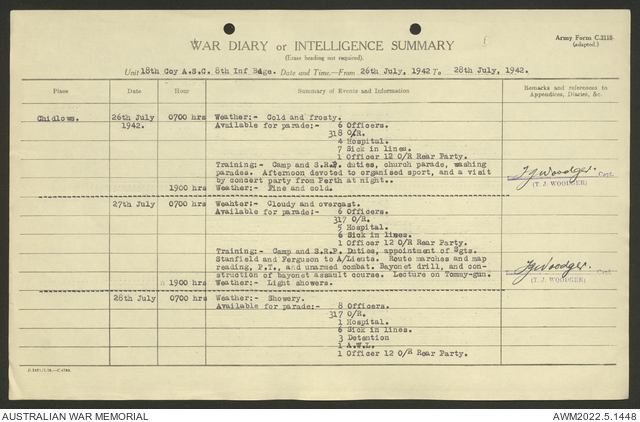 Army Form C.2118.
(adapted.)
WAR DIARY or INTELLIGENCE SUMMARY
(Erase heading not required).
Unit 18th Coy A.S.C. 8th Inf Bdge. Date and Time.—From 26th July, 1942 To 28th July, 1942.
Place Date Hour Summary of Events and Information Remarks and references to Appendices, Diaries, &c.
Chidlows. 26th July 1942. 0700 hrs Weather:- Cold and frosty.
Available for parade:- 6 Officers.
318 O/R.
4 Hospital.
7 Sick in lines.
1 Officer 12 O/R Rear Party.
Training:- Camp and S.R.P. duties, church parade, washing
parades. Afternoon devoted to organised sport, and a visit
by concert party from Perth at night..
T J Woodger. Capt.
(T. J. WOODGER)
1900 hrs Weather:- Fine and cold.
27th July 0700 hrs Weahter:- Cloudy and overcast.
Available for parade:- 6 Officers.
317 O/R.
5 Hospital.
6 Sick in lines.
1 Officer 12 O/R Rear Party.
Training:- Camp and S.R.P. Duties, appointment of Sgts.
Stanfield and Ferguson to A/Lieuts. Route marches and map
reading, P.T., and unarmed combat. Bayonet drill, and con-
struction of bayonet assault course. Lecture on Tommy-gun.
T J Woodger. Capt.
(T. J. WOODGER)
1900 hrs Weather:- Light showers.
28th July 0700 hrs Weather:- Showery.
Available for parade:- 8 Officers.
317 O/R.
1 Hospital.
6 Sick in lines.
3 Detention
1 A.W.L.
1 Officer 12 O/R Rear Party.
AUSTRALIAN WAR MEMORIAL
AWM2022.5.1448